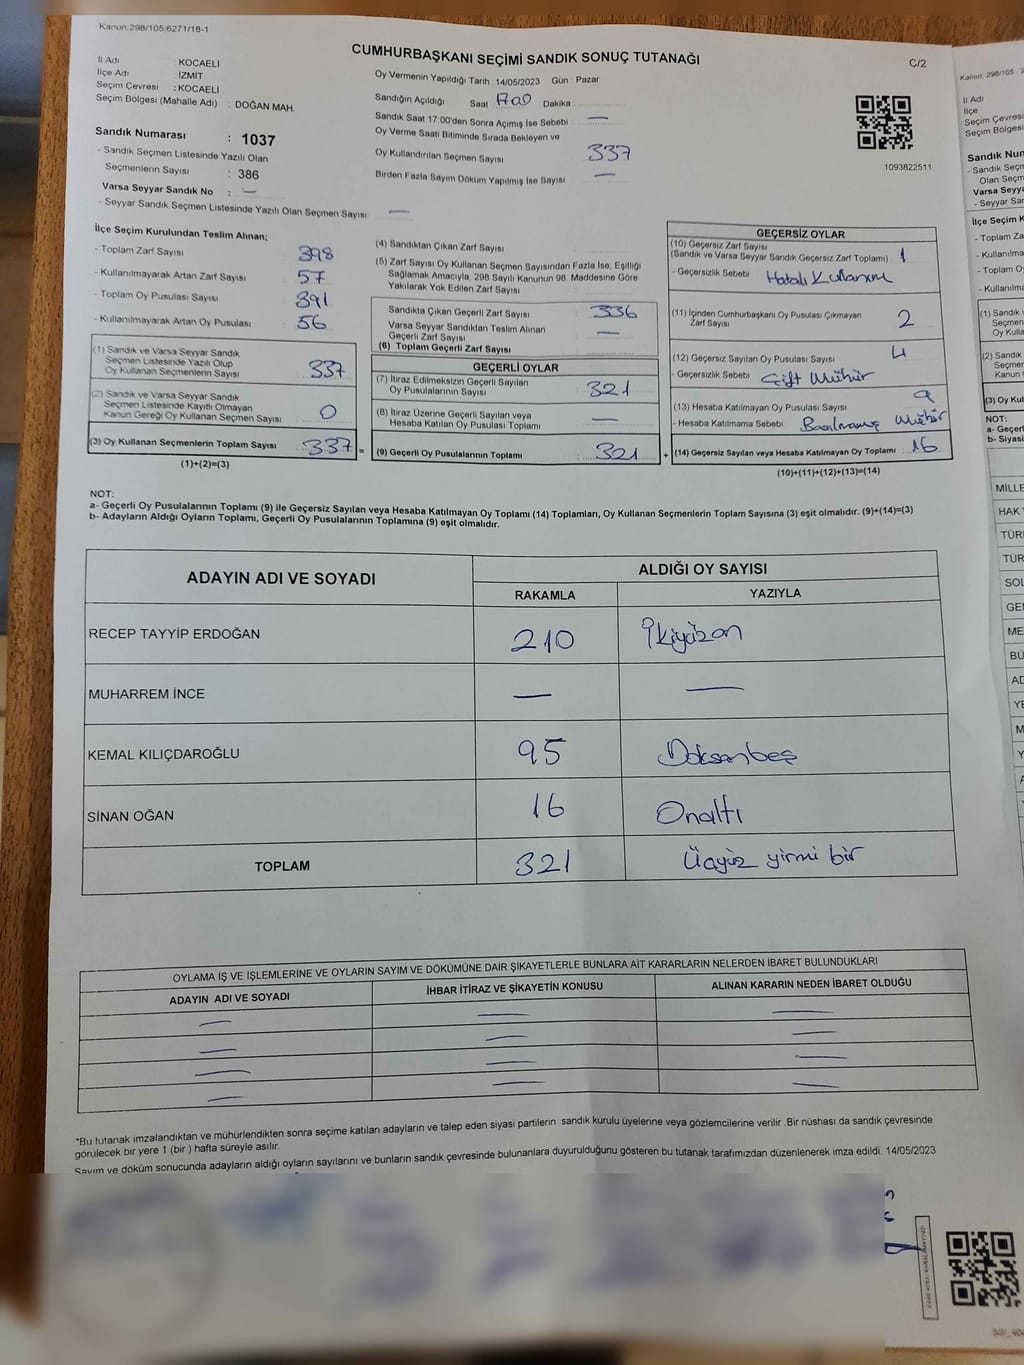 Kanun:298/105;6271/18-1
CUMHURBAŞKANI SEÇİMİ SANDIK SONUÇ TUTANAĞI
C/2
İl Adı : KOCAELİ
İlçe Adı : İZMİT
Seçim Çevresi : KOCAELİ
Seçim Bölgesi (Mahalle Adı) : DOĞAN MAH.
Sandık Numarası : 1037
- Sandık Seçmen Listesinde Yazılı Olan
Seçmenlerin Sayısı : 386
Varsa Seyyar Sandık No : —
- Seyyar Sandık Seçmen Listesinde Yazılı Olan Seçmen Sayısı —
Oy Vermenin Yapıldığı Tarih : 14/05/2023 Gün : Pazar
Sandığın Açıldığı Saat 17:00 Dakika
Sandık Saat 17:00'den Sonra Açımış İse Sebebi —
Oy Verme Saati Bitiminde Sırada Bekleyen ve
Oy Kullandırılan Seçmen Sayısı 337
Birden Fazla Sayım Döküm Yapılmış İse Sayısı —
1093822511
İlçe Seçim Kurulundan Teslim Alınan;
- Toplam Zarf Sayısı 398
- Kullanılmayarak Artan Zarf Sayısı 57
- Toplam Oy Pusulası Sayısı 391
- Kullanılmayarak Artan Oy Pusulası 56
(1) Sandık ve Varsa Seyyar Sandık
Seçmen Listesinde Yazılı Olup
Oy Kullanan Seçmenlerin Sayısı 337
(2) Sandık ve Varsa Seyyar Sandık
Seçmen Listesinde Kayıtlı Olmayan
Kanun Gereği Oy Kullanan Seçmen Sayısı 0
(3) Oy Kullanan Seçmenlerin Toplam Sayısı 337 =
(1)+(2)=(3)
(4) Sandıktan Çıkan Zarf Sayısı
(5) Zarf Sayısı Oy Kullanan Seçmen Sayısından Fazla İse, Eşitliği
Sağlamak Amacıyla, 298 Sayılı Kanunun 98. Maddesine Göre
Yakılarak Yok Edilen Zarf Sayısı
Sandıkta Çıkan Geçerli Zarf Sayısı 336
Varsa Seyyar Sandıktan Teslim Alınan
Geçerli Zarf Sayısı —
(6) Toplam Geçerli Zarf Sayısı
GEÇERLİ OYLAR
(7) İtiraz Edilmeksizin Geçerli Sayılan
Oy Pusulalarının Sayısı 321
(8) İtiraz Üzerine Geçerli Sayılan veya
Hesaba Katılan Oy Pusulası Toplamı —
(9) Geçerli Oy Pusulalarının Toplamı 321 +
GEÇERSİZ OYLAR
(10) Geçersiz Zarf Sayısı
(Sandık ve Varsa Seyyar Sandık Geçersiz Zarf Toplamı) 1
- Geçersizlik Sebebi Hatalı Kullanım
(11) İçinden Cumhurbaşkanı Oy Pusulası Çıkmayan
Zarf Sayısı 2
(12) Geçersiz Sayılan Oy Pusulası Sayısı 4
- Geçersizlik Sebebi Çift Mühür
(13) Hesaba Katılmayan Oy Pusulası Sayısı 9
- Hesaba Katılmama Sebebi Basılmamış Mühür
(14) Geçersiz Sayılan veya Hesaba Katılmayan Oy Toplamı 16
(10)+(11)+(12)+(13)=(14)
NOT:
a- Geçerli Oy Pusulalarının Toplamı (9) ile Geçersiz Sayılan veya Hesaba Katılmayan Oy Toplamı (14) Toplamları, Oy Kullanan Seçmenlerin Toplam Sayısına (3) eşit olmalıdır. (9)+(14)=(3)
b- Adayların Aldığı Oyların Toplamı, Geçerli Oy Pusulalarının Toplamına (9) eşit olmalıdır.
ADAYIN ADI VE SOYADI ALDIĞI OY SAYISI
RAKAMLA YAZIYLA
RECEP TAYYİP ERDOĞAN 210 İkiyüzon
MUHARREM İNCE — —
KEMAL KILIÇDAROĞLU 95 Doksanbeş
SİNAN OĞAN 16 Onaltı
TOPLAM 321 Üçyüz yirmi bir
OYLAMA İŞ VE İŞLEMLERİNE VE OYLARIN SAYIM VE DÖKÜMÜNE DAİR ŞİKAYETLERLE BUNLARA AİT KARARLARIN NELERDEN İBARET BULUNDUKLARI
ADAYIN ADI VE SOYADI İHBAR İTİRAZ VE ŞİKAYETİN KONUSU ALINAN KARARIN NEDEN İBARET OLDUĞU
— — —
— — —
— — —
— — —
*Bu tutanak imzalandıktan ve mühürlendikten sonra seçime katılan adayların ve talep eden siyasi partilerin sandık kurulu üyelerine veya gözlemcilerine verilir .Bir nüshası da sandık çevresinde
görülecek bir yere 1 (bir ) hafta süreyle asılır.
Sayım ve döküm sonucunda adayların aldığı oyların sayılarını ve bunların sandık çevresinde bulunanlara duyurulduğunu gösteren bu tutanak tarafımızdan düzenlenerek imza edildi. 14/05/2023
Kanun: 298/105
İl Adı
İlçe
Seçim Çevres
Seçim Bölges
Sandık Num
- Sandık Seçm
Olan Seçm
Varsa Seyya
- Seyyar San
İlçe Seçim K
- Toplam Za
- Kullanılma
- Toplam O
- Kullanılma
(1) Sandık
Seçmen
Oy Kull
(2) Sandık
Seçme
Kanun
(3) Oy Kul
NOT:
a- Geçerl
b- Siyasi
MİLLE
HAK
TÜR
TÜR
SOL
GE
ME
BÜ
AD
YE
M
Y